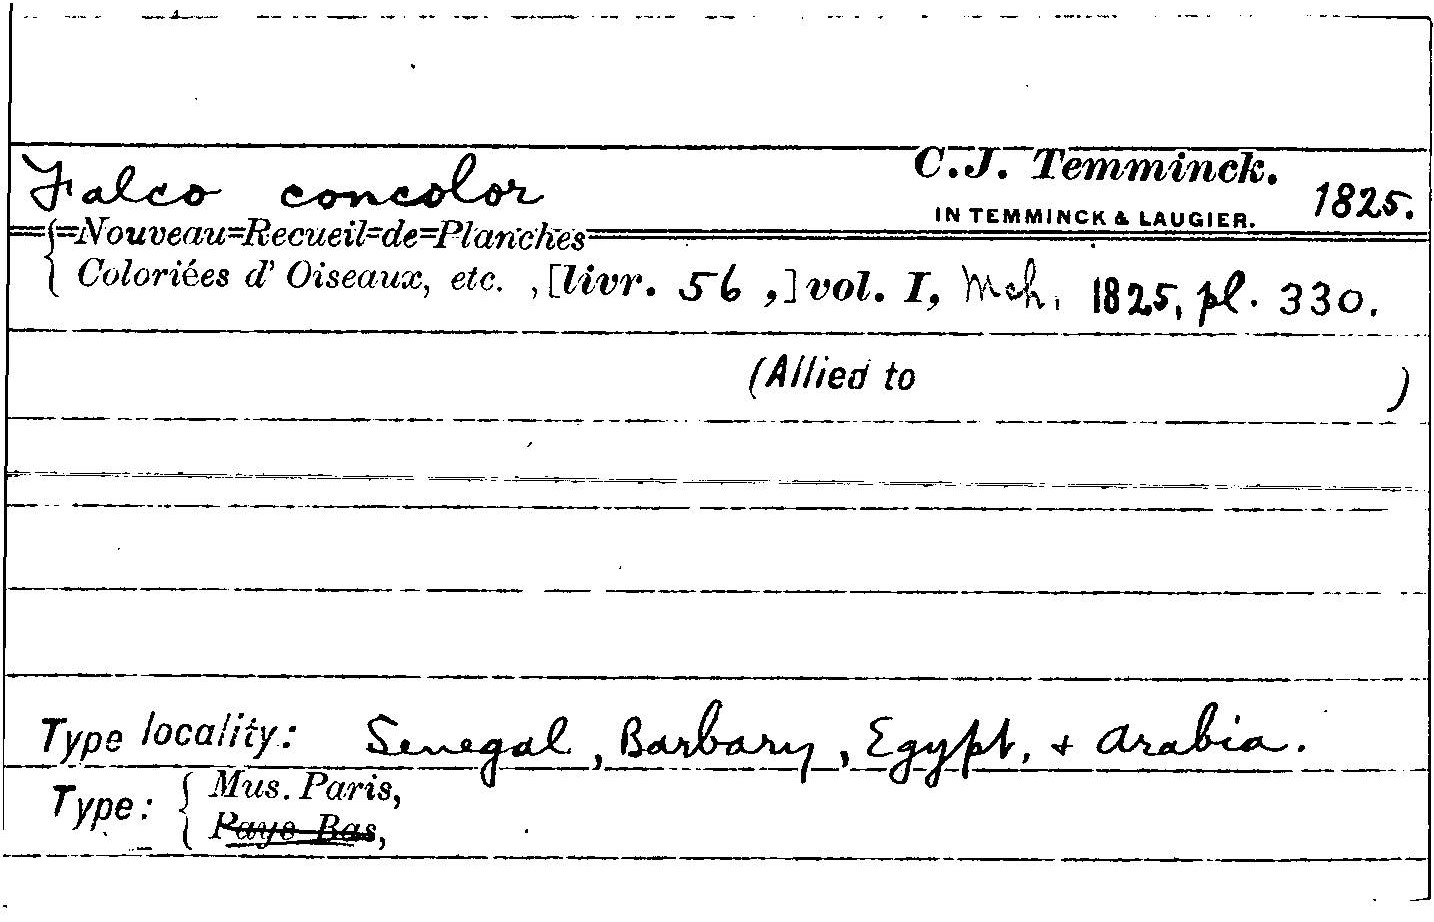 Falco concolor C.J. Temminck. 1825.
IN TEMMINCK & LAUGIER.
Nouveau Recueil de Planches
Coloriées d' Oiseaux, etc. , [livr. 56 ,] vol. I, Mch. 1825, pl. 330.
(Allied to )
Type locality: Senegal, Barbary, Egypt, + Arabia.
Type: { Mus. Paris,
Pays Bas,